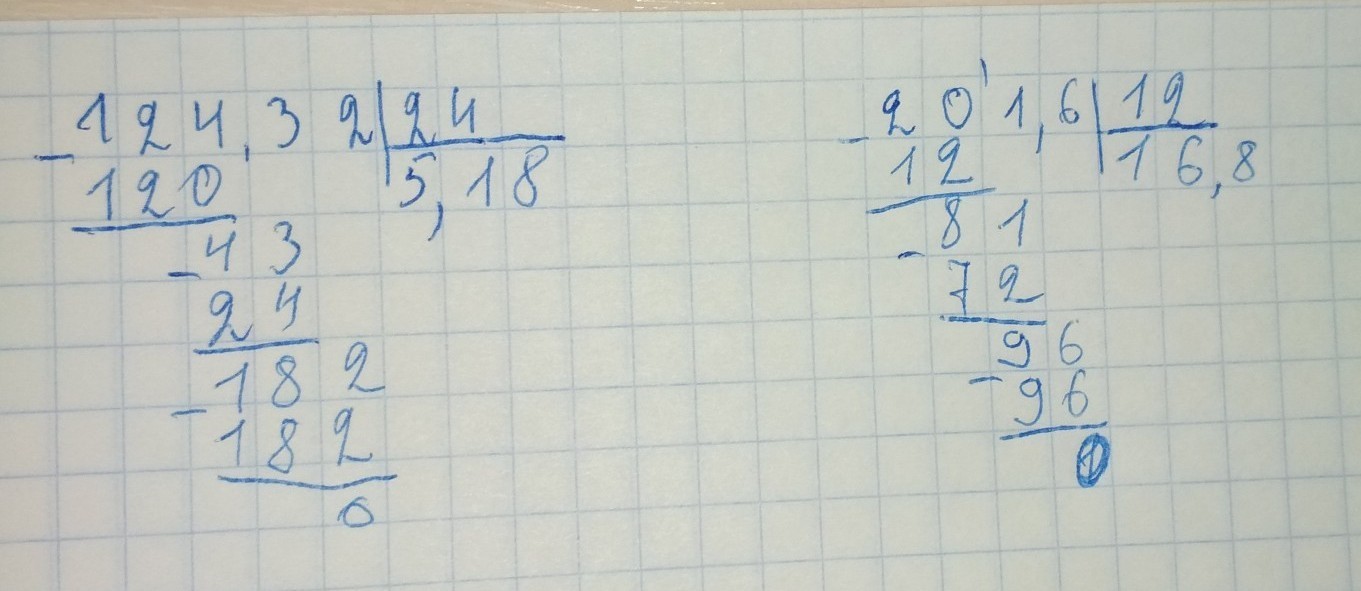 124,32|24
- 120 5,18
- 43
24
- 182
182
0
201,6|12
- 12 16,8
81
- 72
96
- 96
0